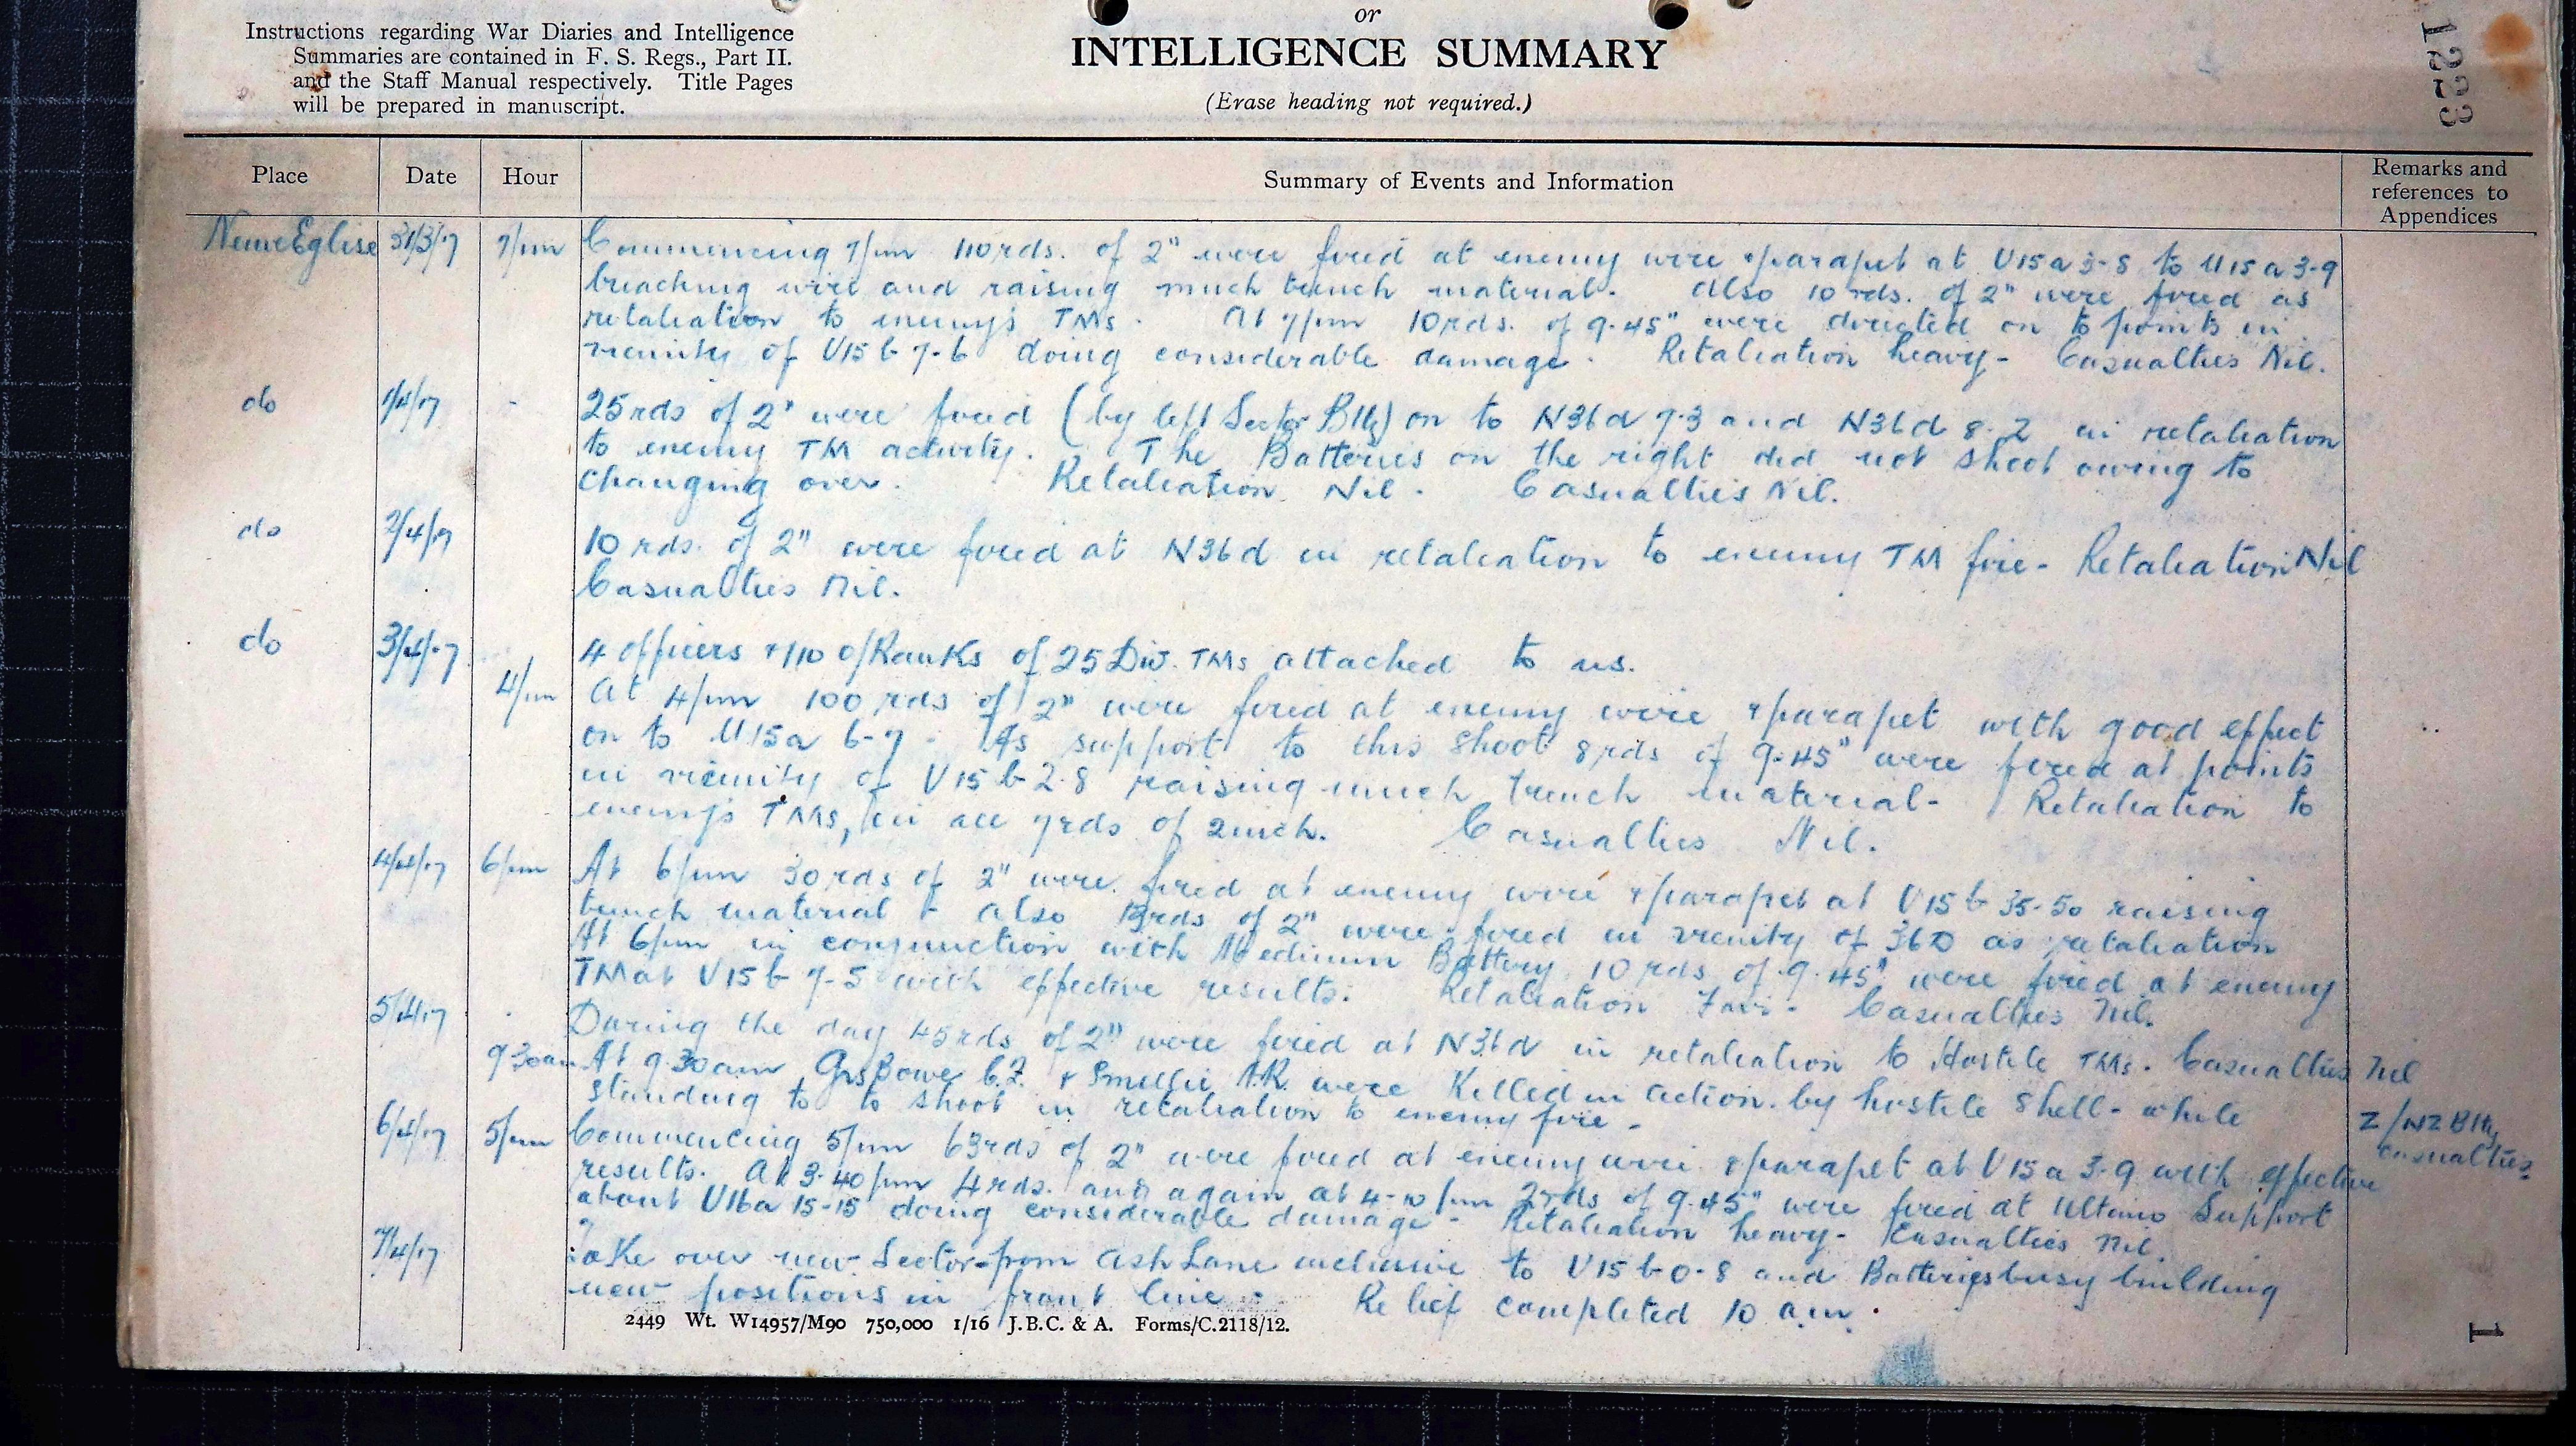 or
Instructions regarding War Diaries and Intelligence
Summaries are contained in F. S. Regs., Part II.
and the Staff Manual respectively. Title Pages
will be prepared in manuscript.
INTELLIGENCE SUMMARY
(Erase heading not required.)
1223
Place Date Hour Summary of Events and Information Remarks and references to Appendices
Neuve Eglise 31/3/17 7pm Commencing 7pm 110 rds. of 2" were fired at enemy wire & parapet at U15a 3-8 to U15a 3-9
breaching wire and raising much trench material. Also 10 rds. of 2" were fired as
retaliation to enemy's TMs. At 7pm 10 rds. of 9.45" were directed on to points in
vicinity of U15b 7-6 doing considerable damage. Retaliation heavy - Casualties Nil.
do 1/4/17 - 25 rds of 2" were fired (by left Sector Bty) on to N36d 7.3 and N36d 8.2 in retaliation
to enemy TM activity. The Batteries on the right did not shoot owing to
changing over. Retaliation Nil. Casualties Nil.
do 2/4/17 10 rds. of 2" were fired at N36d in retaliation to enemy TM fire - Retaliation Nil
Casualties Nil.
do 3/4/17 4 officers & 110 o/Ranks of 25 Div. TMs attached to us.
4pm At 4pm 100 rds of 2" were fired at enemy wire & parapet with good effect
on to U15a 6-7. As support to this shoot 8 rds of 9.45" were fired at points
in vicinity of U15b 2.8 raising much trench material - Retaliation to
enemy's TMs, in all 7 rds of 2 inch. Casualties Nil.
4/4/17 6pm At 6pm 30 rds of 2" were fired at enemy wire & parapet at U15b 35-50 raising
trench material - also rds of 2" were fired in vicinity of 36D as retaliation
At 6pm in conjunction with Medium Battery 10 rds of 9.45" were fired at enemy
TM at U15b 7-5 with effective results. Retaliation Fair. Casualties Nil.
5/4/17 During the day 45 rds of 2" were fired at N36d in retaliation to Hostile TMs. Casualties Nil
9 30am At 9.30am Gnrs Bowe C.F. & Smellie A.R. were Killed in action by hostile shell - while
standing to to shoot in retaliation to enemy fire -
Z/NZ Bty
casualties
6/4/17 5pm Commencing 5pm 63 rds of 2" were fired at enemy wire & parapet at U15a 3-9 with effective
results. At 3.40pm 4 rds. and again at 4-10pm 2 rds of 9.45" were fired at Ultimo Support
about U16a 15-15 doing considerable damage - Retaliation heavy - Casualties Nil.
7/4/17 Take over new Sector from Ash Lane inclusive to U15b 0-8 and Batteries busy building
new positions in front line. Relief completed 10 a.m.
2449 Wt. W14957/M90 750,000 1/16 J.B.C. & A. Forms/C.2118/12.
1